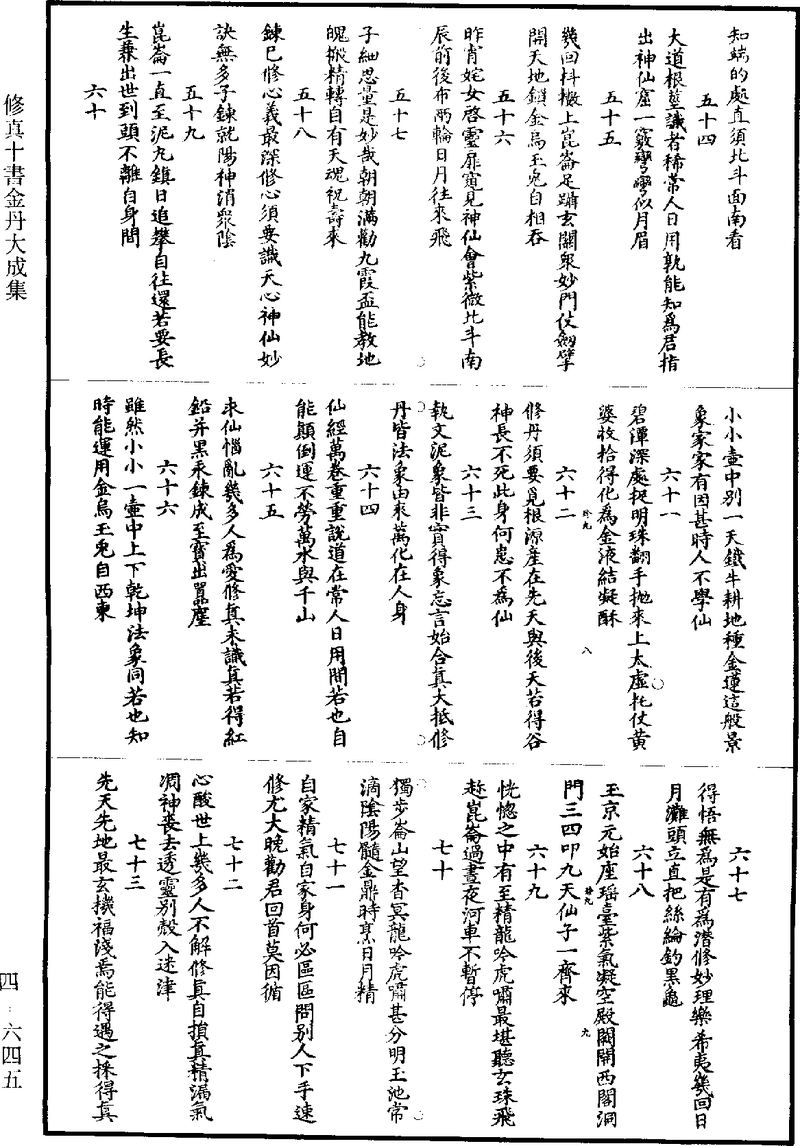 知端的處直須北斗面南看
五十四
大道根莖識者稀常人日用孰能知為君指
出神仙窟一竅彎彎似月眉
五十五
幾回抖擻上崑崙足躡玄關衆妙門仗劒擘
開天地鎖金烏玉兔自相吞
五十六
昨宵姹女啓靈扉窺見神仙會紫微北斗南
辰前後布兩輪日月往來飛
五十七
子細思量是妙哉朝朝滿勸九霞盃能教地
魄搬精轉自有天魂祝壽來
五十八
鍊巳修心義最深修心須要識天心神仙妙
訣無多子鍊就陽神消衆陰
五十九
崑崙一直至泥丸鎮日追攀自往還若要長
生兼出世到頭不離自身間
六十
小小壺中別一天鐵牛耕地種金蓮這般景
象家家有因甚時人不學仙
六十一
碧潭深處捉明珠翻手拋來上太虛托仗黃
婆收拾得化為金液結凝酥
六十二
修丹須要覓根源產在先天與後天若得谷
神長不死此身何患不為仙
六十三
執文泥象皆非實得象忘言始合真大抵修
丹皆法象由來萬化在人身
六十四
仙經萬卷重重說道在常人日用間若也自
能顛倒運不勞萬水與千山
六十五
求仙惱亂幾多人為愛修真未識真若得紅
鉛并黑汞鍊成至寶出囂塵
六十六
雖然小小一壺中上下乾坤法象同若也知
時能運用金烏玉兔自西東
八
六十七
得悟無為是有為潛修妙理樂希夷幾回日
月灘頭立直把絲綸釣黑龜
六十八
玉京元始座瑤臺紫氣凝空殿闕開西閣洞
門三四叩九天仙子一齊來
九
六十九
恍惚之中有至精龍吟虎嘯最堪聽玄珠飛
趂崑崙過晝夜河車不暫停
七十
獨步崙山望杳冥龍吟虎嘯甚分明玉池常
滴陰陽髓金鼎時烹日月精
七十一
自家精氣自家身何必區區問別人下手速
修尤大晚勸君回首莫因循
七十二
心酸世上幾多人不解修真自損真精漏氣
凋神喪去透靈別殼入迷津
七十三
先天先地最玄機福淺焉能得遇之採得真
修真十書金丹大成集
四–六四五